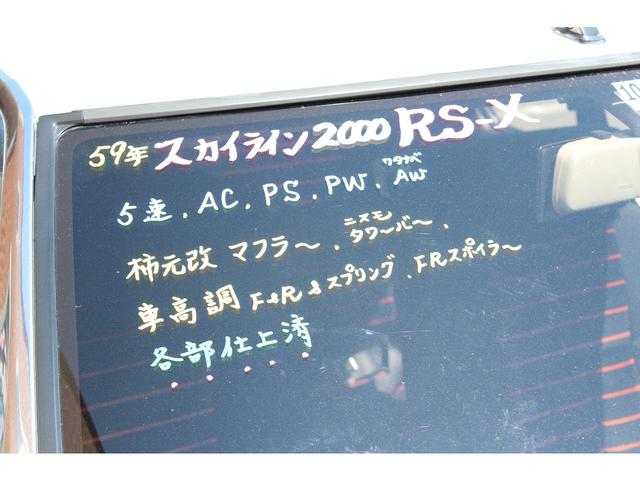 10
59年 スカイライン2000 RS-X
ワタナベ
5速、AC、PS、PW、AW
ニスモ
柿元改 マフラー、タワーバー、
車高調 F&R&スプリング、FRスポイラー
各部仕上済